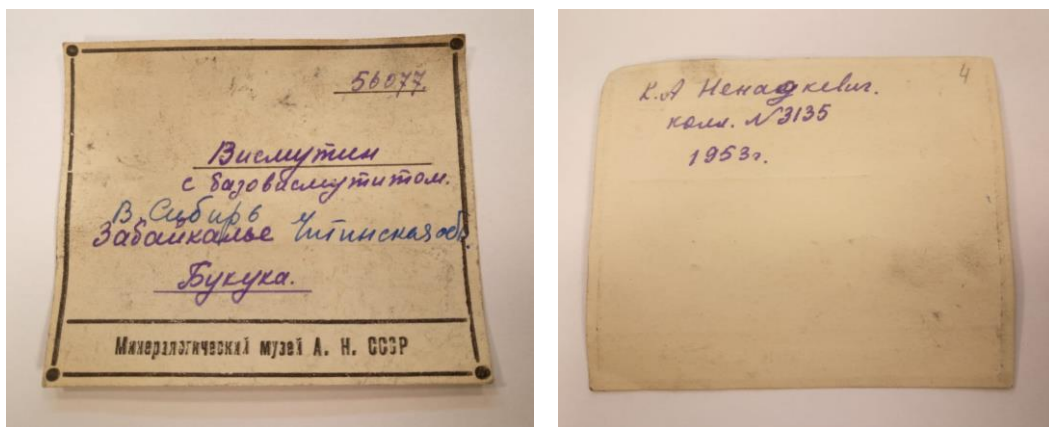 56077.
Висмутин
с базовисмутитом.
В. Сибирь
Забайкалье Читинская обл.
Букука.
Минералогический музей А. Н. СССР
4
К.А Ненадкевич.
колл. №3135
1953г.